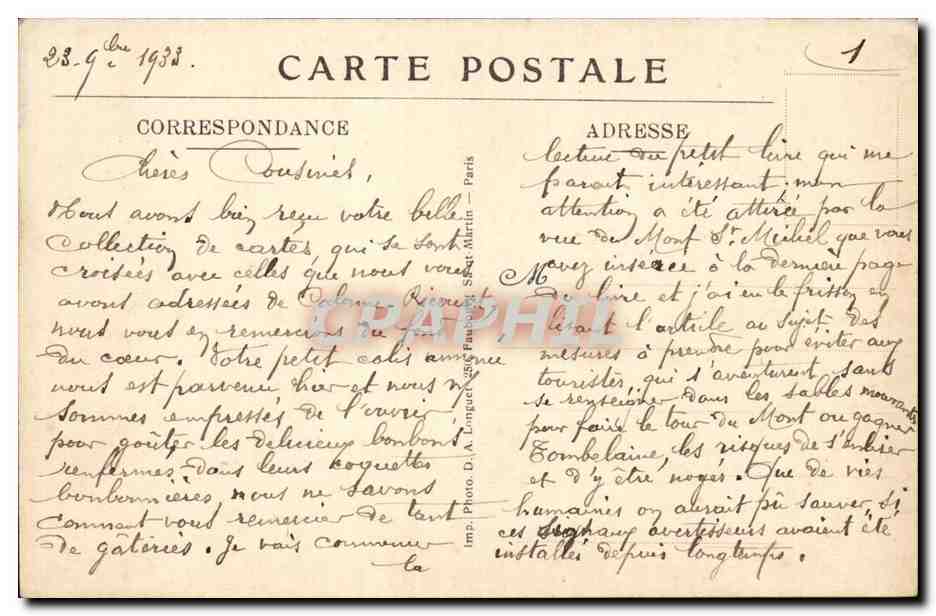 23-9bre 1933.
1
CARTE POSTALE
CORRESPONDANCE
Chères Cousines,
Nous avons bien reçu votre belle
collection de cartes qui se sont
croisées avec celles que nous vous
avons adressées de Colonne
nous vous en remercions du fond
du cœur. Votre petit colis annoncé
nous est parvenu hier et nous n/
sommes empressés de l'ouvrir
pour goûter les délicieux bonbons
renfermés dans leurs coquettes
bonbonnières, nous ne savons
comment vous remercier de tant
de gâteries. Je vais commencer
la
Imp. Photo. D. A. Longuet 250, Faubourg Saint-Martin — Paris
ADRESSE
M
lecture du petit livre qui me
parait intéressant; mon
attention a été attirée par la
vue du Mont St Michel que vous
avez insérée à la dernière page
du livre et j'ai eu le frisson en
lisant l'article au sujet des
mesures à prendre pour éviter aux
touristes, qui s'aventurent sans
se renseigner dans les sables mouvants
pour faire le tour du Mont ou gagner
Tombelaine, les risques de s'enliser
et d'y être noyés. Que de vies
humaines on aurait pû sauver si
ces signaux avertisseurs avaient été
installés depuis longtemps.
CPAPHIL